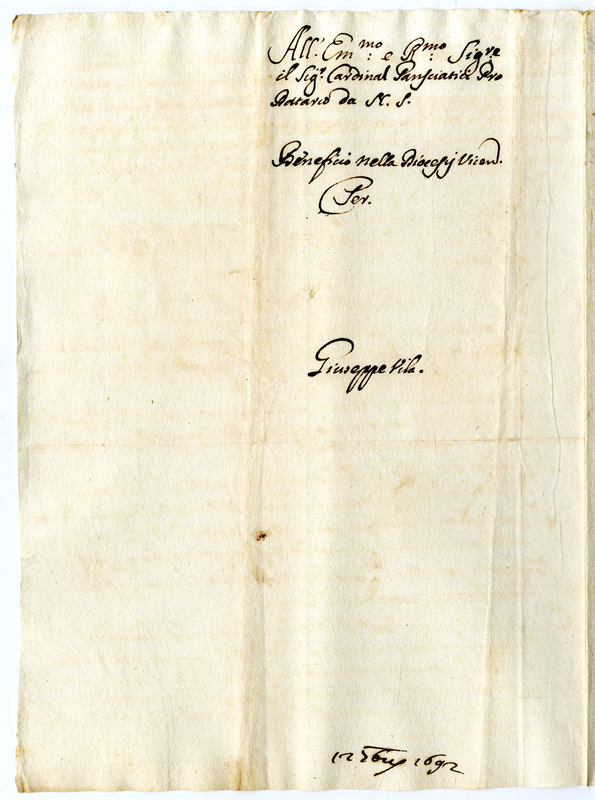 All'. Em:mo e R:mo Sigre
il Sigr. Cardinal Pansciatici Pro
Datario da N. S.
Beneficio nella Diocesj Vicen.
Per.
Giuseppe Vila.
12 Xbris 1692